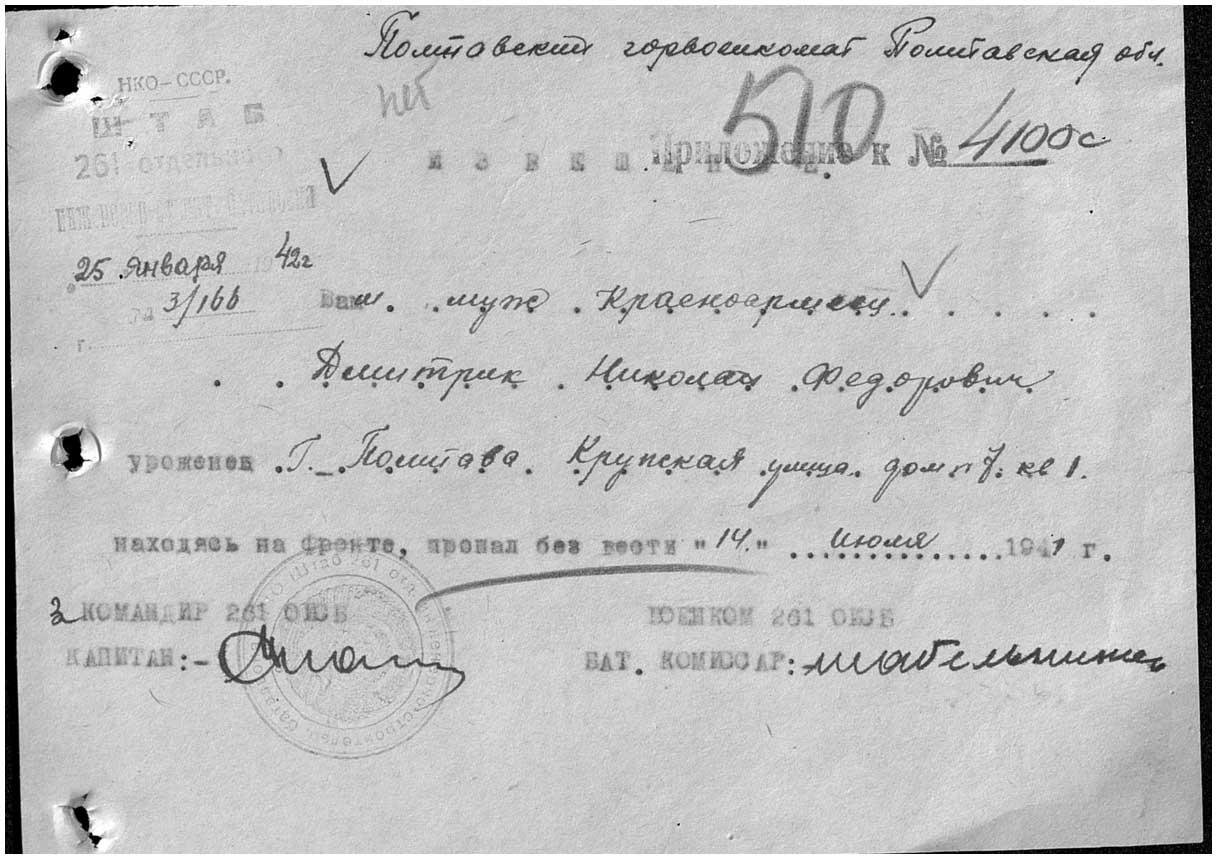 Полтавский горвоенкомат Полтавская обл.
НКО-СССР.
нет
510
ШТАБ
Приложение к № 4100с
261 отдельного
ИЗВЕЩЕНИЕ.
25 января 1942г
3/166
г.
Ваш муж Красноармеец
Дмитрик Николай Федорович
уроженец Г. Полтава. Крупская улица. дом n 7. кв 1.
находясь на фронте, пропал без вести "14" июля 1941 г.
З КОМАНДИР 261 ОИСБ ВОЕНКОМ 261 ОИСБ
КАПИТАН:- БАТ. КОМИССАР: